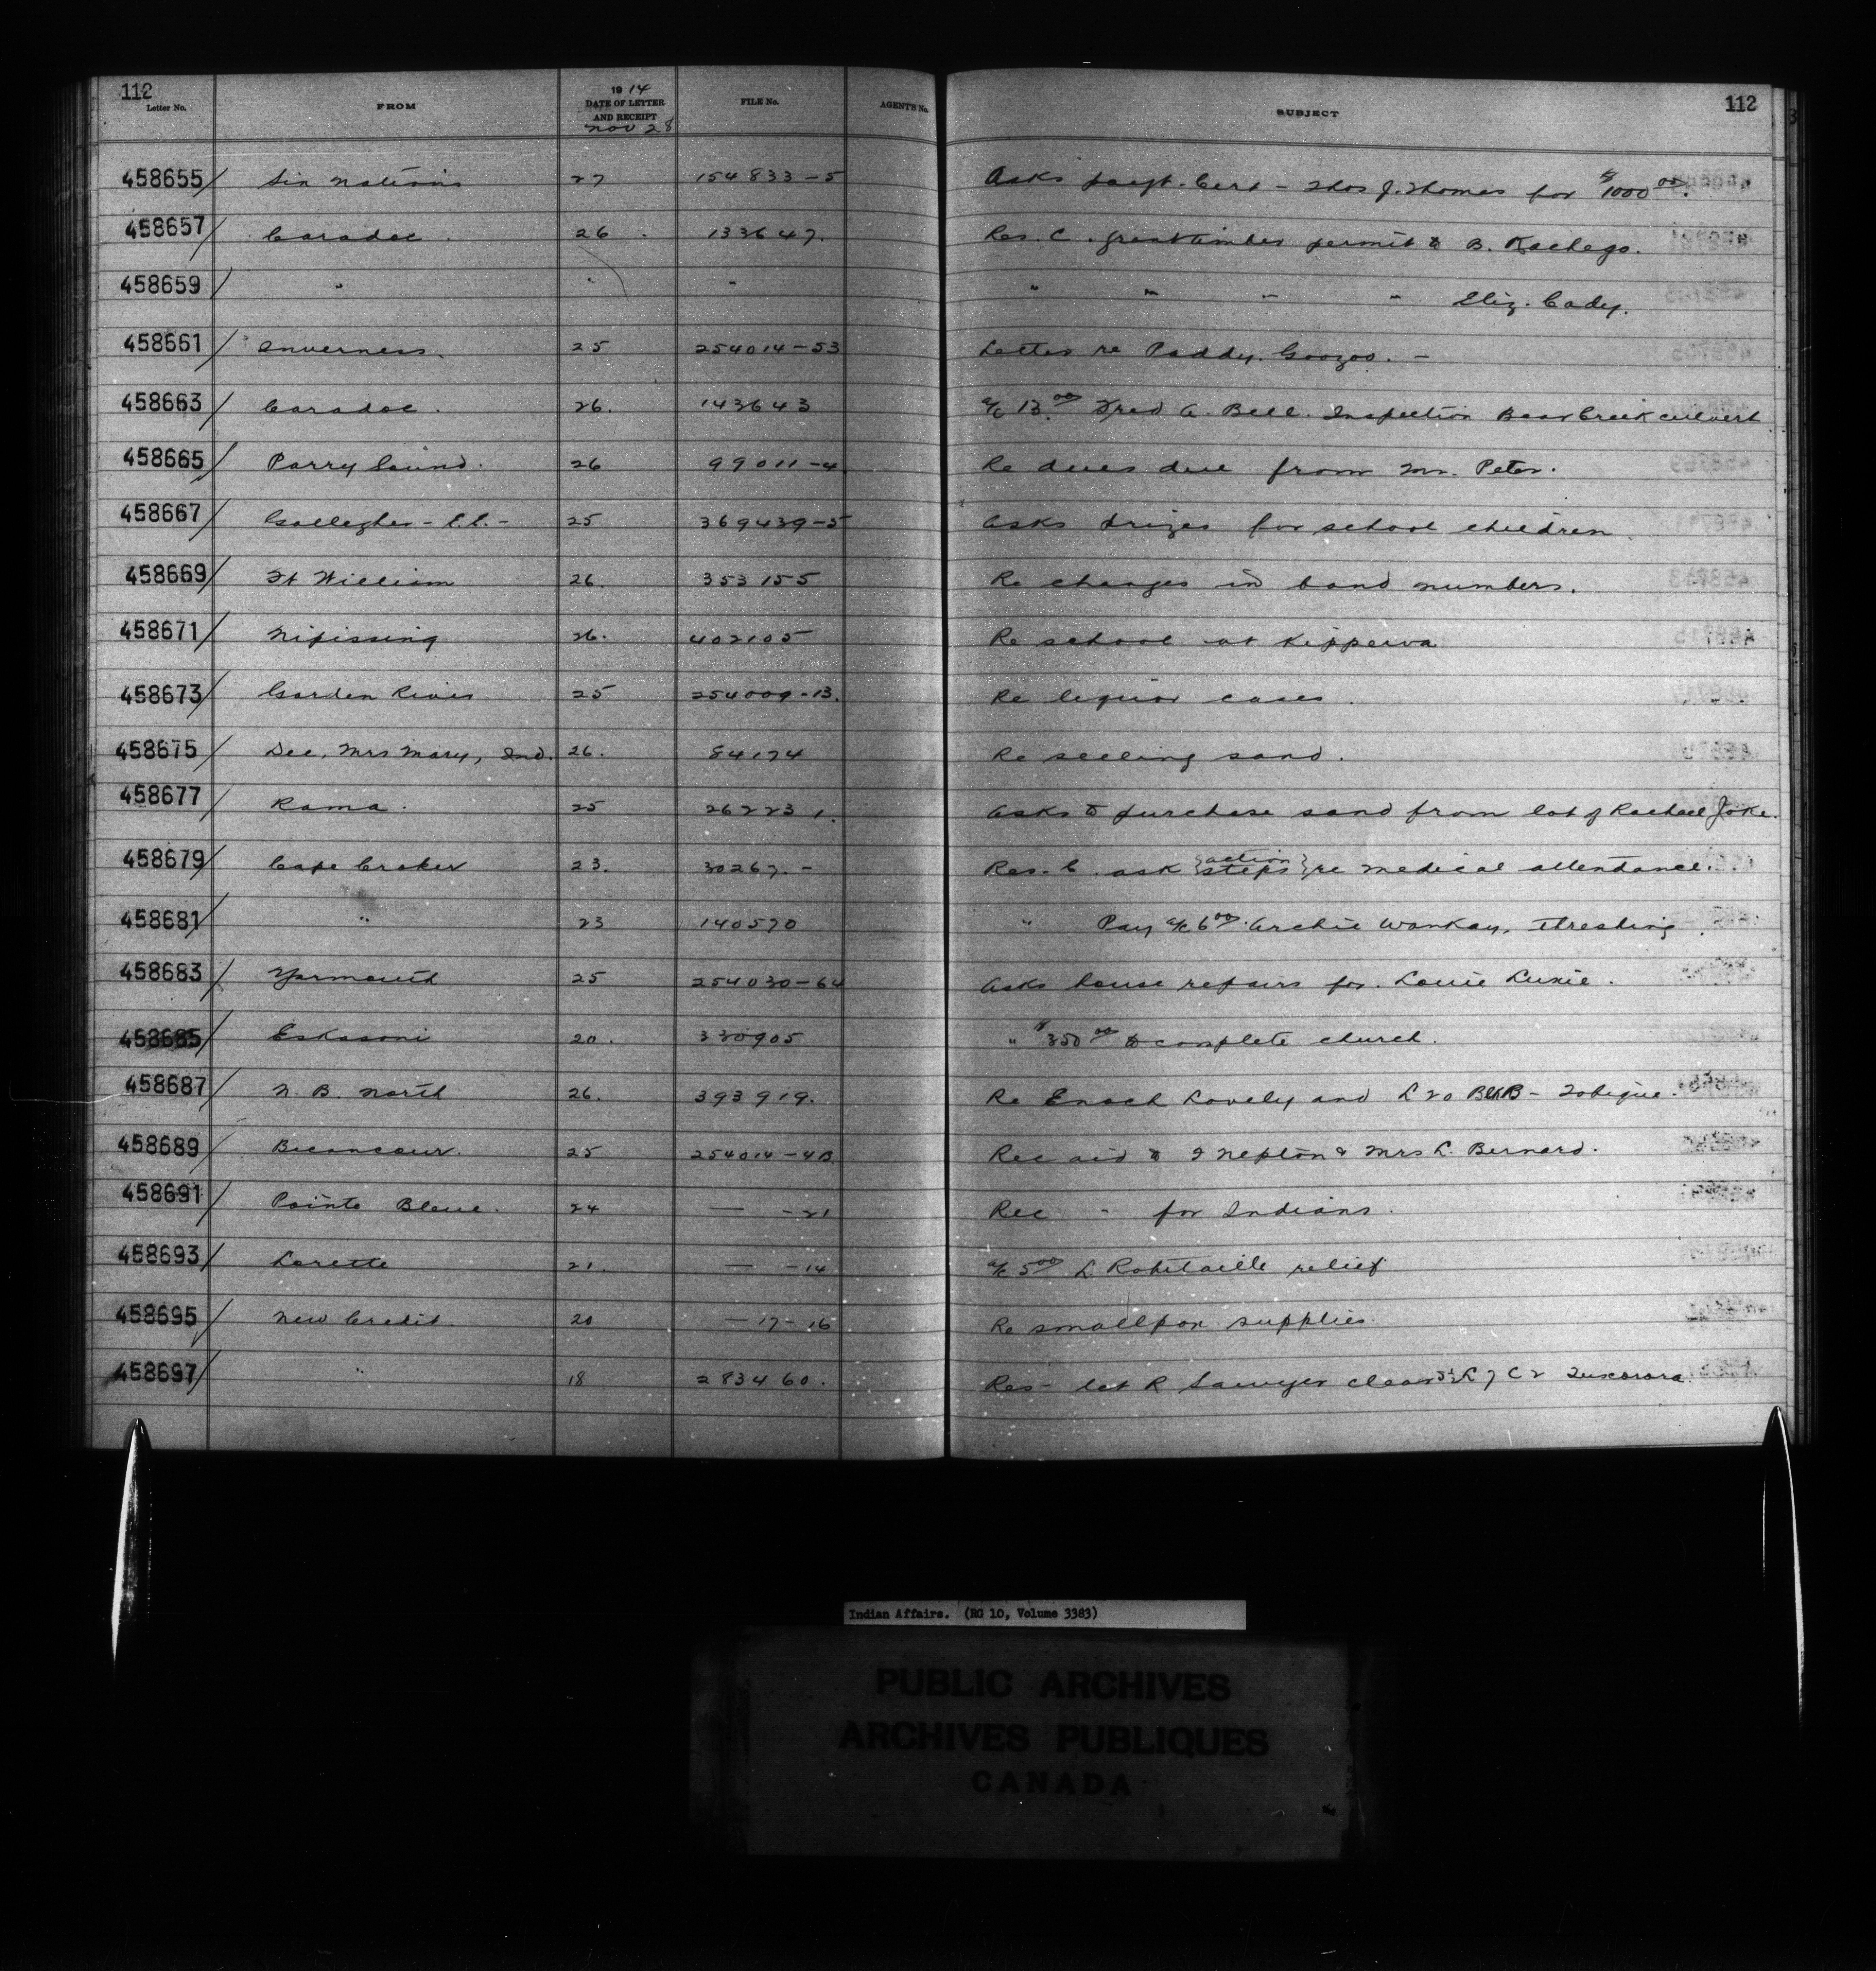 112
Letter No. FROM 1914 DATE OF LETTER AND RECEIPT FILE No. AGENT'S No. SUBJECT 112
Nov 28
458655/ Six Nations 27 154833-5 Asks payt. Cert - Thos J. Thomas for $1000 00.
458657/ Caradoc. 26 133647. Res. C. grant timber permit to B. Kachego.
458659/ " " " " " " " Eliz. Cady.
458661/ Inverness. 25 254014-53 Letter re Paddy. Googoo. -
458663/ Caradoc. 26. 143643 a/c 13.00 Fred A. Bell. Inspection Bear Creek culvert
458665/ Parry Sound. 26 99011-4 Re dues due from Mr. Peter.
458667/ Gallegher - 25 369439-5 Asks prizes for school children.
458669/ Ft William 26. 353155 Re changes in band numbers.
458671/ Nipissing 26. 402105 Re school at Kipperva
458673/ Garden River 25 254009-13. Re liquor cases.
458675/ Dec, Mrs Mary, Ind. 26. 84174 Re selling sand.
458677/ Rama. 25 262231. Asks to purchase sand from lot of Rachael Joke.
458679/ Cape Croker 23. 30267. - Res. C. ask {action steps} re medical attendance.
458681/ " 23 140570 " Pay a/c 6 00. Archie Wankay. threshing.
458683/ Yarmouth 25 254030-64 Asks house repairs for. Louie Luxie.
458685/ Eskasoni 20. 330905 " $350 00 to complete church.
458687/ N. B. North 26. 393919. Re Enoch Lovely and L 20 Blk B - Tobique.
458689/ Becancour. 25 254014-4B. Rec aid to I Nepton & Mrs L. Bernard.
458691/ Pointe Bleue. 24 — -21 Rec " for Indians.
458693/ Lorette 21. — -14 a/c 5 00 L Robitaille relief
458695/ New Credit. 20 — 17-16 Re smallpox supplies.
458697/ " 18 283460. Res - let R Sawyer clear L 7 C 2 Tuscarora.
Indian Affairs. (RG 10, Volume 3383)
PUBLIC ARCHIVES
ARCHIVES PUBLIQUES
CANADA